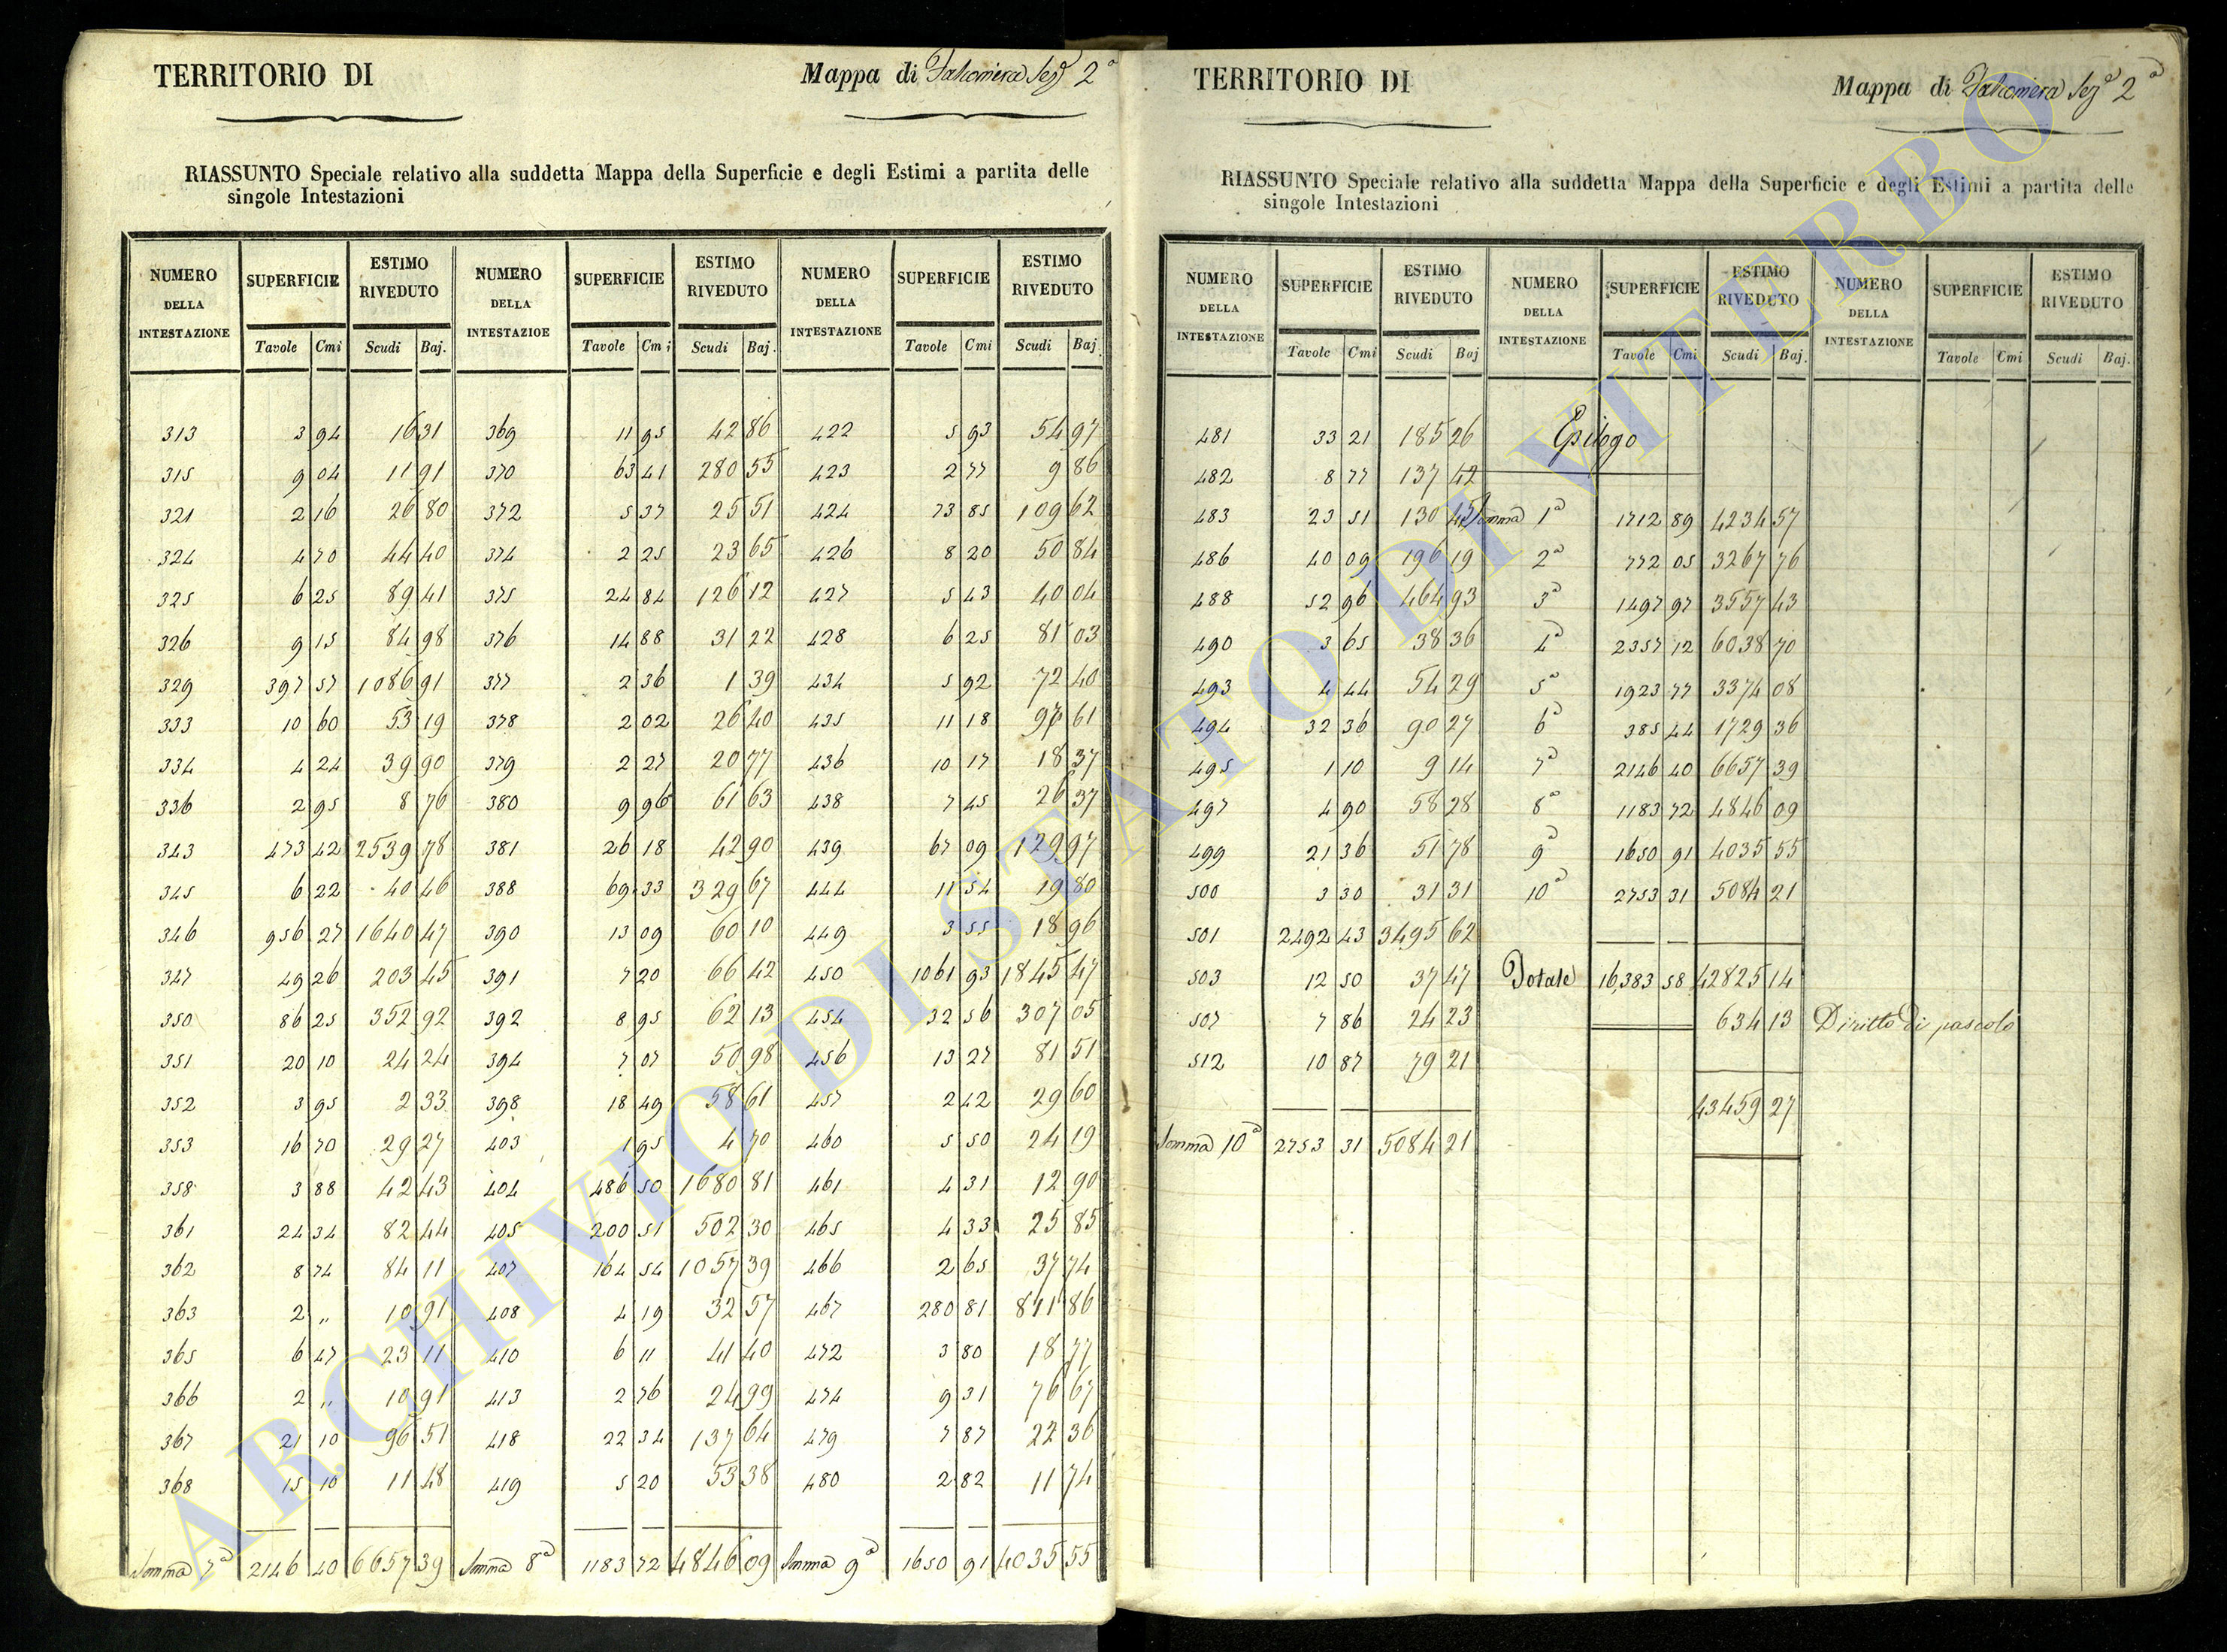 TERRITORIO DI
Mappa di Falconiera Sezª 2ª
RIASSUNTO Speciale relativo alla suddetta Mappa della Superficie e degli Estimi a partita delle
singole Intestazioni
NUMERO DELLA INTESTAZIONE SUPERFICIE ESTIMO RIVEDUTO NUMERO DELLA INTESTAZIOE SUPERFICIE ESTIMO RIVEDUTO NUMERO DELLA INTESTAZIONE SUPERFICIE ESTIMO RIVEDUTO
Tavole Cmi Scudi Baj. Tavole Cmi Scudi Baj. Tavole Cmi Scudi Baj.
313 3 94 16 31 369 11 95 42 86 422 5 93 54 97
315 9 04 11 91 370 63 41 280 55 423 2 77 9 86
321 2 16 26 80 372 5 37 25 51 424 73 85 109 62
324 4 70 44 40 374 2 25 23 65 426 8 20 50 84
325 6 25 89 41 375 24 84 126 12 427 5 43 40 04
326 9 15 84 98 376 14 88 31 22 428 6 25 81 03
329 397 57 1086 91 377 2 36 1 39 434 5 92 72 40
333 10 60 53 19 378 2 02 26 40 435 11 18 97 61
334 4 24 39 90 379 2 27 20 77 436 10 17 18 37
336 2 95 8 76 380 9 96 61 63 438 7 45 26 37
343 473 42 2539 78 381 26 18 42 90 439 67 09 129 97
345 6 22 40 46 388 69 33 329 67 444 11 54 19 80
346 956 27 1640 47 390 13 09 60 10 449 3 55 18 96
347 49 26 203 45 391 7 20 66 42 450 1061 93 1845 47
350 86 25 352 92 392 8 95 62 13 454 32 56 307 05
351 20 10 24 24 394 7 07 50 98 456 13 27 81 51
352 3 95 2 33 398 18 49 58 61 457 2 42 29 60
353 16 70 29 27 403 1 95 4 70 460 5 50 24 19
358 3 88 42 43 404 486 50 1680 81 461 4 31 12 90
361 24 34 82 44 405 200 51 502 30 465 4 33 25 85
362 8 74 84 11 407 164 54 1057 39 466 2 65 37 74
363 2 „ 10 91 408 4 19 32 57 467 280 81 811 86
365 6 47 23 11 410 6 11 41 40 472 3 80 18 77
366 2 „ 10 91 413 2 76 24 99 474 9 31 76 67
367 21 10 96 51 418 22 34 137 64 479 7 87 22 36
368 15 10 11 48 419 5 20 53 38 480 2 82 11 74
Somma 7ª 2146 40 6657 39 Somma 8ª 1183 72 4846 09 Somma 9ª 1650 91 4035 55
TERRITORIO DI
Mappa di Falconiera Sezª 2ª
RIASSUNTO Speciale relativo alla suddetta Mappa della Superficie e degli Estimi a partita delle
singole Intestazioni
NUMERO DELLA INTESTAZIONE SUPERFICIE ESTIMO RIVEDUTO NUMERO DELLA INTESTAZIONE SUPERFICIE ESTIMO RIVEDUTO NUMERO DELLA INTESTAZIONE SUPERFICIE ESTIMO RIVEDUTO
Tavole Cmi Scudi Baj Tavole Cmi Scudi Baj. Tavole Cmi Scudi Baj.
481 33 21 185 26 Epilogo
482 8 77 137 42
483 23 51 130 45 Somma 1ª 1712 89 4234 57
486 40 09 196 19 2ª 772 05 3267 76
488 52 96 464 93 3ª 1497 97 3557 43
490 3 65 38 36 4ª 2357 12 6038 70
493 4 44 54 29 5ª 1923 77 3374 08
494 32 36 90 27 6ª 385 44 1729 36
495 1 10 9 14 7ª 2146 40 6657 39
497 4 90 58 28 8ª 1183 72 4846 09
499 21 36 51 78 9ª 1650 91 4035 55
500 3 30 31 31 10ª 2753 31 5084 21
501 2492 43 3495 62
503 12 50 37 47 Totale 16,383 58 42825 14
507 7 86 24 23 634 13 Diritto di pascolo
512 10 87 79 21
43459 27
Somma 10ª 2753 31 5084 21
ARCHIVIO DI STATO DI VITERBO